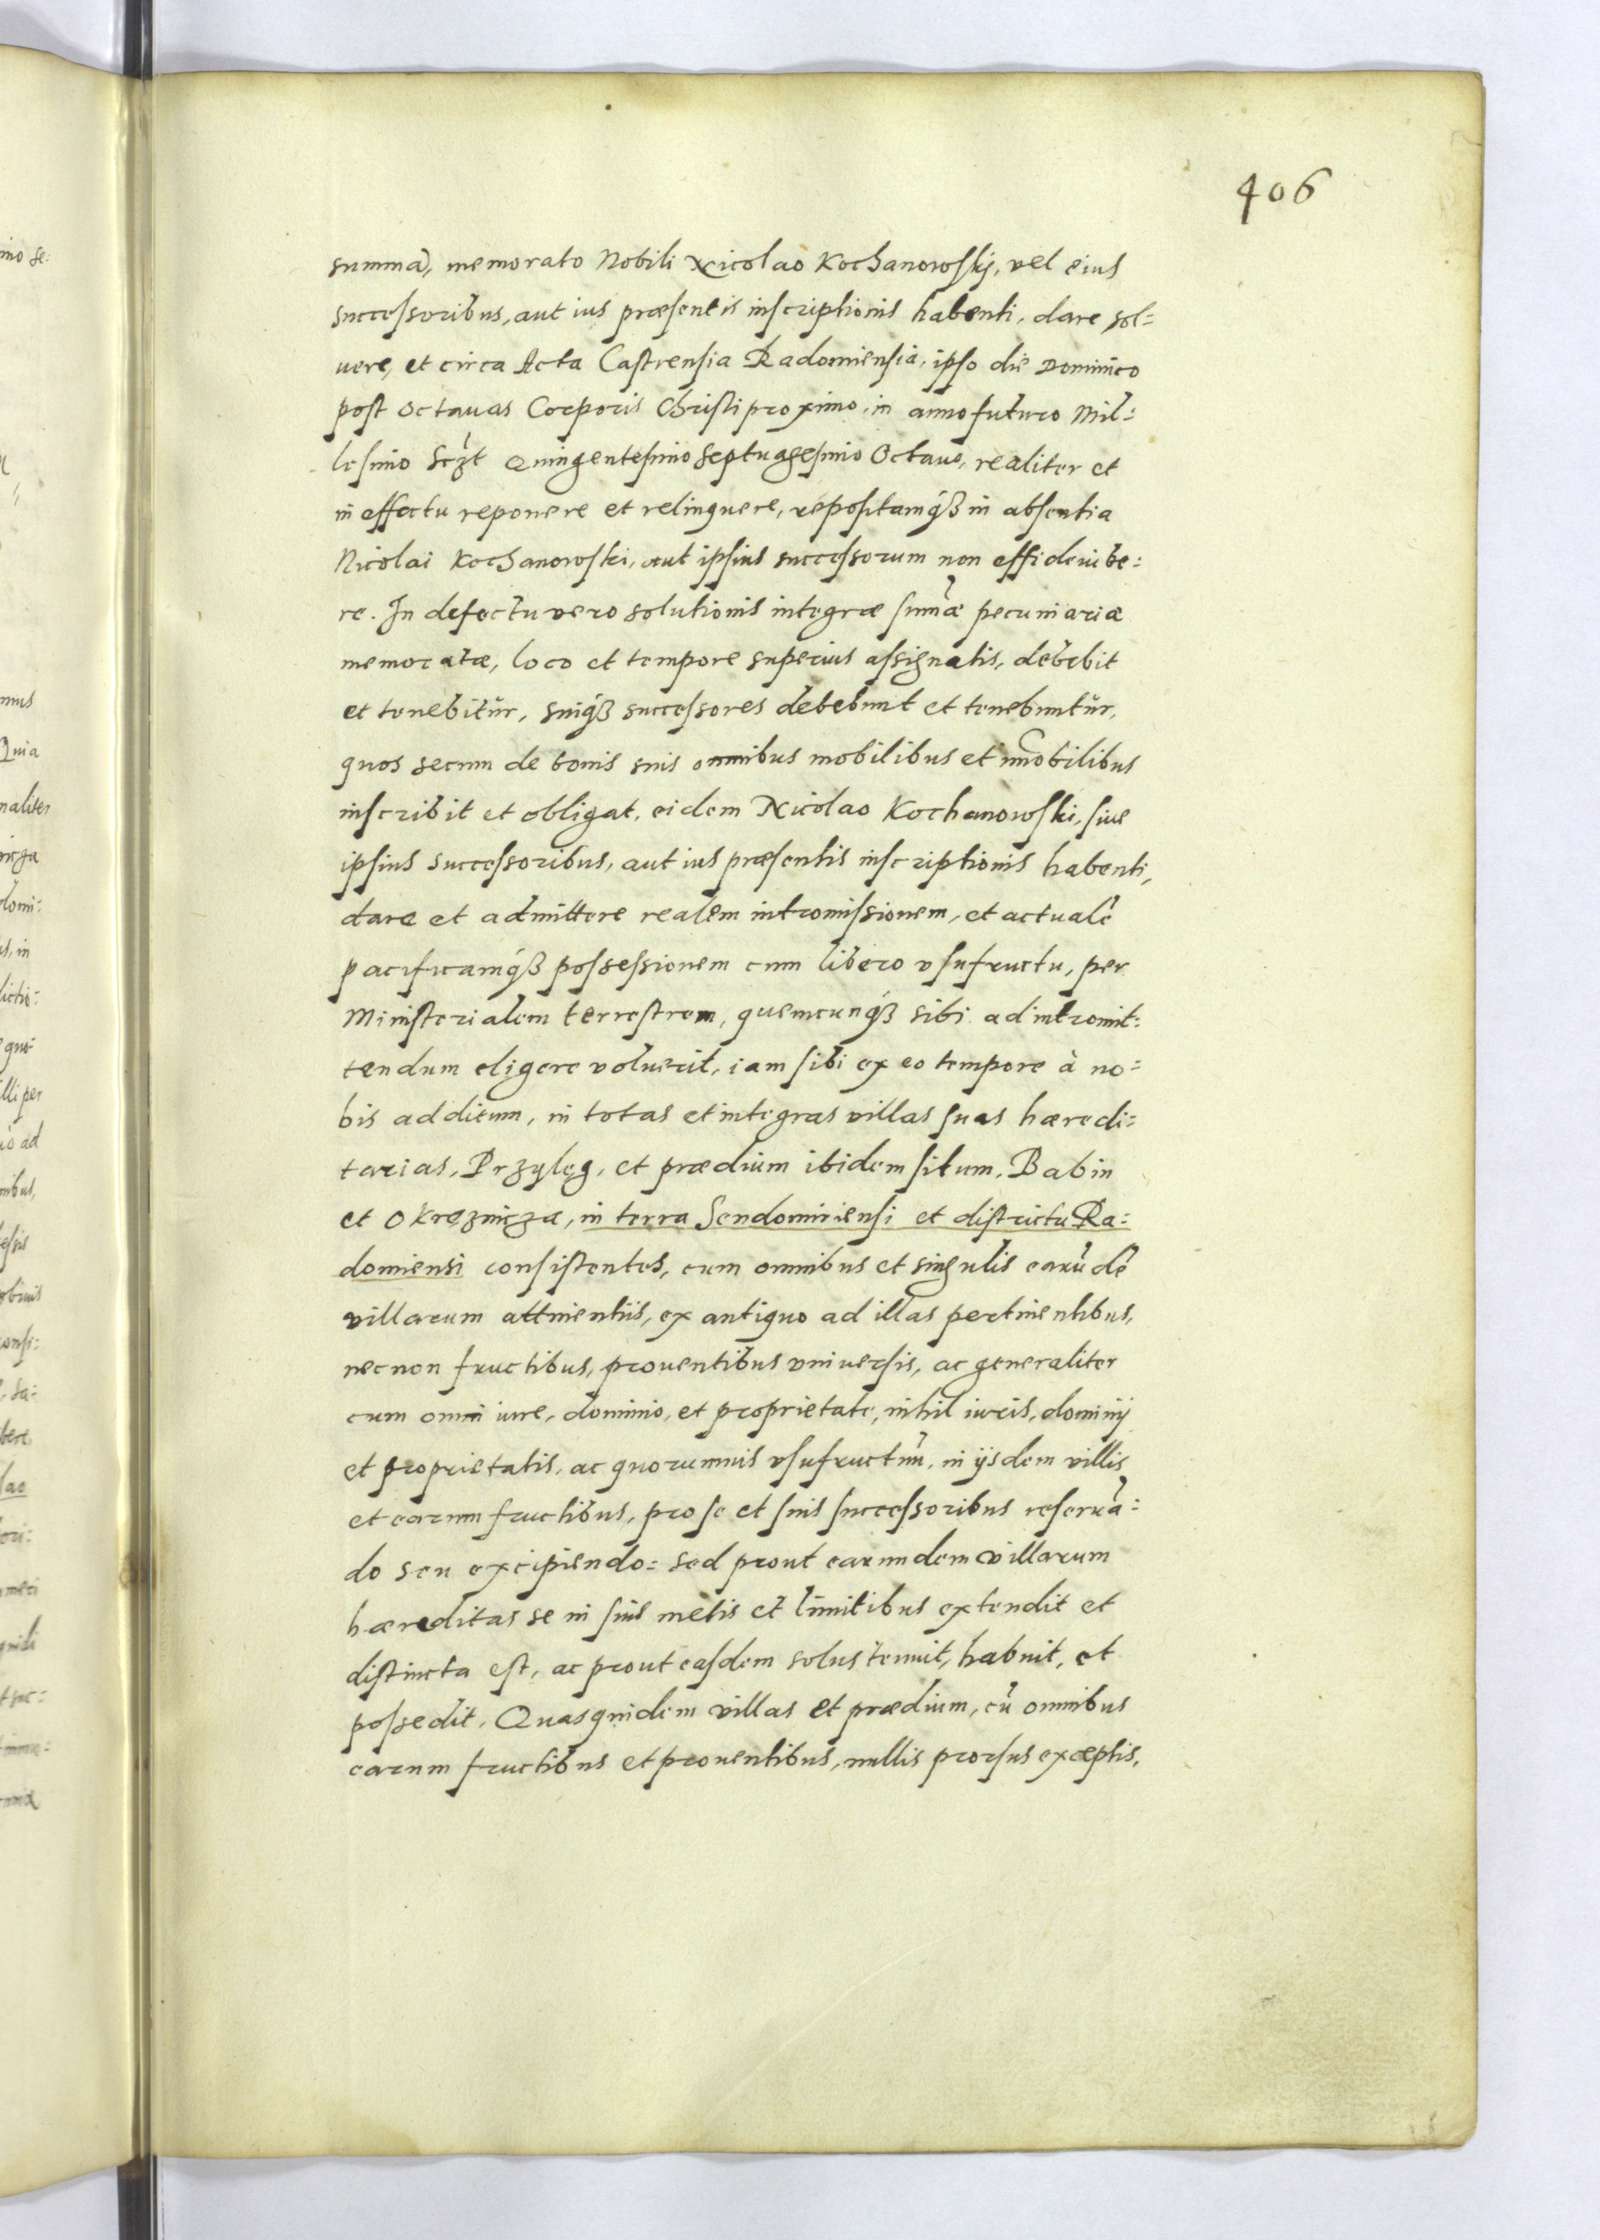 406
summã, memorato Nobili Nicolao Kochanowskij, vel eius
successoribus, aut ius præsentis inscriptionis habenti, dare sol=
uere, et circa Acta Castrensia Radomiensia, ipso die Dominico
post Octauas Corporis Christi proximo, in anno futuro Mil=
lesimo Quingentesimo Septuagesimo Octauo, realiter et
in effectu reponere et relinquere, repositamqꝫ in absentia
Nicolai Kochanowski, aut ipsius successorum non
re. In defectu vero solutionis integræ summæ pecuniariæ
memoratæ, loco et tempore superius assignatis, debebit
et tenebitur, suiqꝫ successores debebunt et tenebuntur,
quos secum de bonis suis omnibus mobilibus et immobilibus
inscribit et obligat, eidem Nicolao Kochanowski, siue
ipsius successoribus, aut ius præsentis inscriptionis habenti,
dare et admittere realem intromissionem, et actualẽ
pacificamqꝫ possessionem cum libero vsufructu, per
Ministerialem terrestrem, quemcunqꝫ sibi ad intromit=
tendum eligere voluerit, iam sibi ex eo tempore à no=
bis additum, in totas et integras villas suas hæredi=
tarias, Przyłęg, et prædium ibidem situm, Babin
et Okreznicza, in terra Sendomiriensi et districtu Ra=
domiensi consistentes, cum omnibus et singulis earũdẽ
villarum attinentiis, ex antiquo ad illas pertinentibus,
necnon fructibus, prouentibus vniuersis, ac generaliter
cum omni iure, dominio, et proprietate, nihil iuris, dominij
et proprietatis, ac quorumuis vsufructuũ, in ijsdem villis
et earum fructibus, pro se et suis successoribus reseruã=
do seu excipiendo: sed prout earumdem villarum
hæreditas se in suis metis et limitibus extendit et
distincta est, ac prout easdem solus tenuit, habuit, et
possedit. Quasquidem villas et prædium, cũ omnibus
earum fructibus et prouentibus, nullis prorsus exceptis,